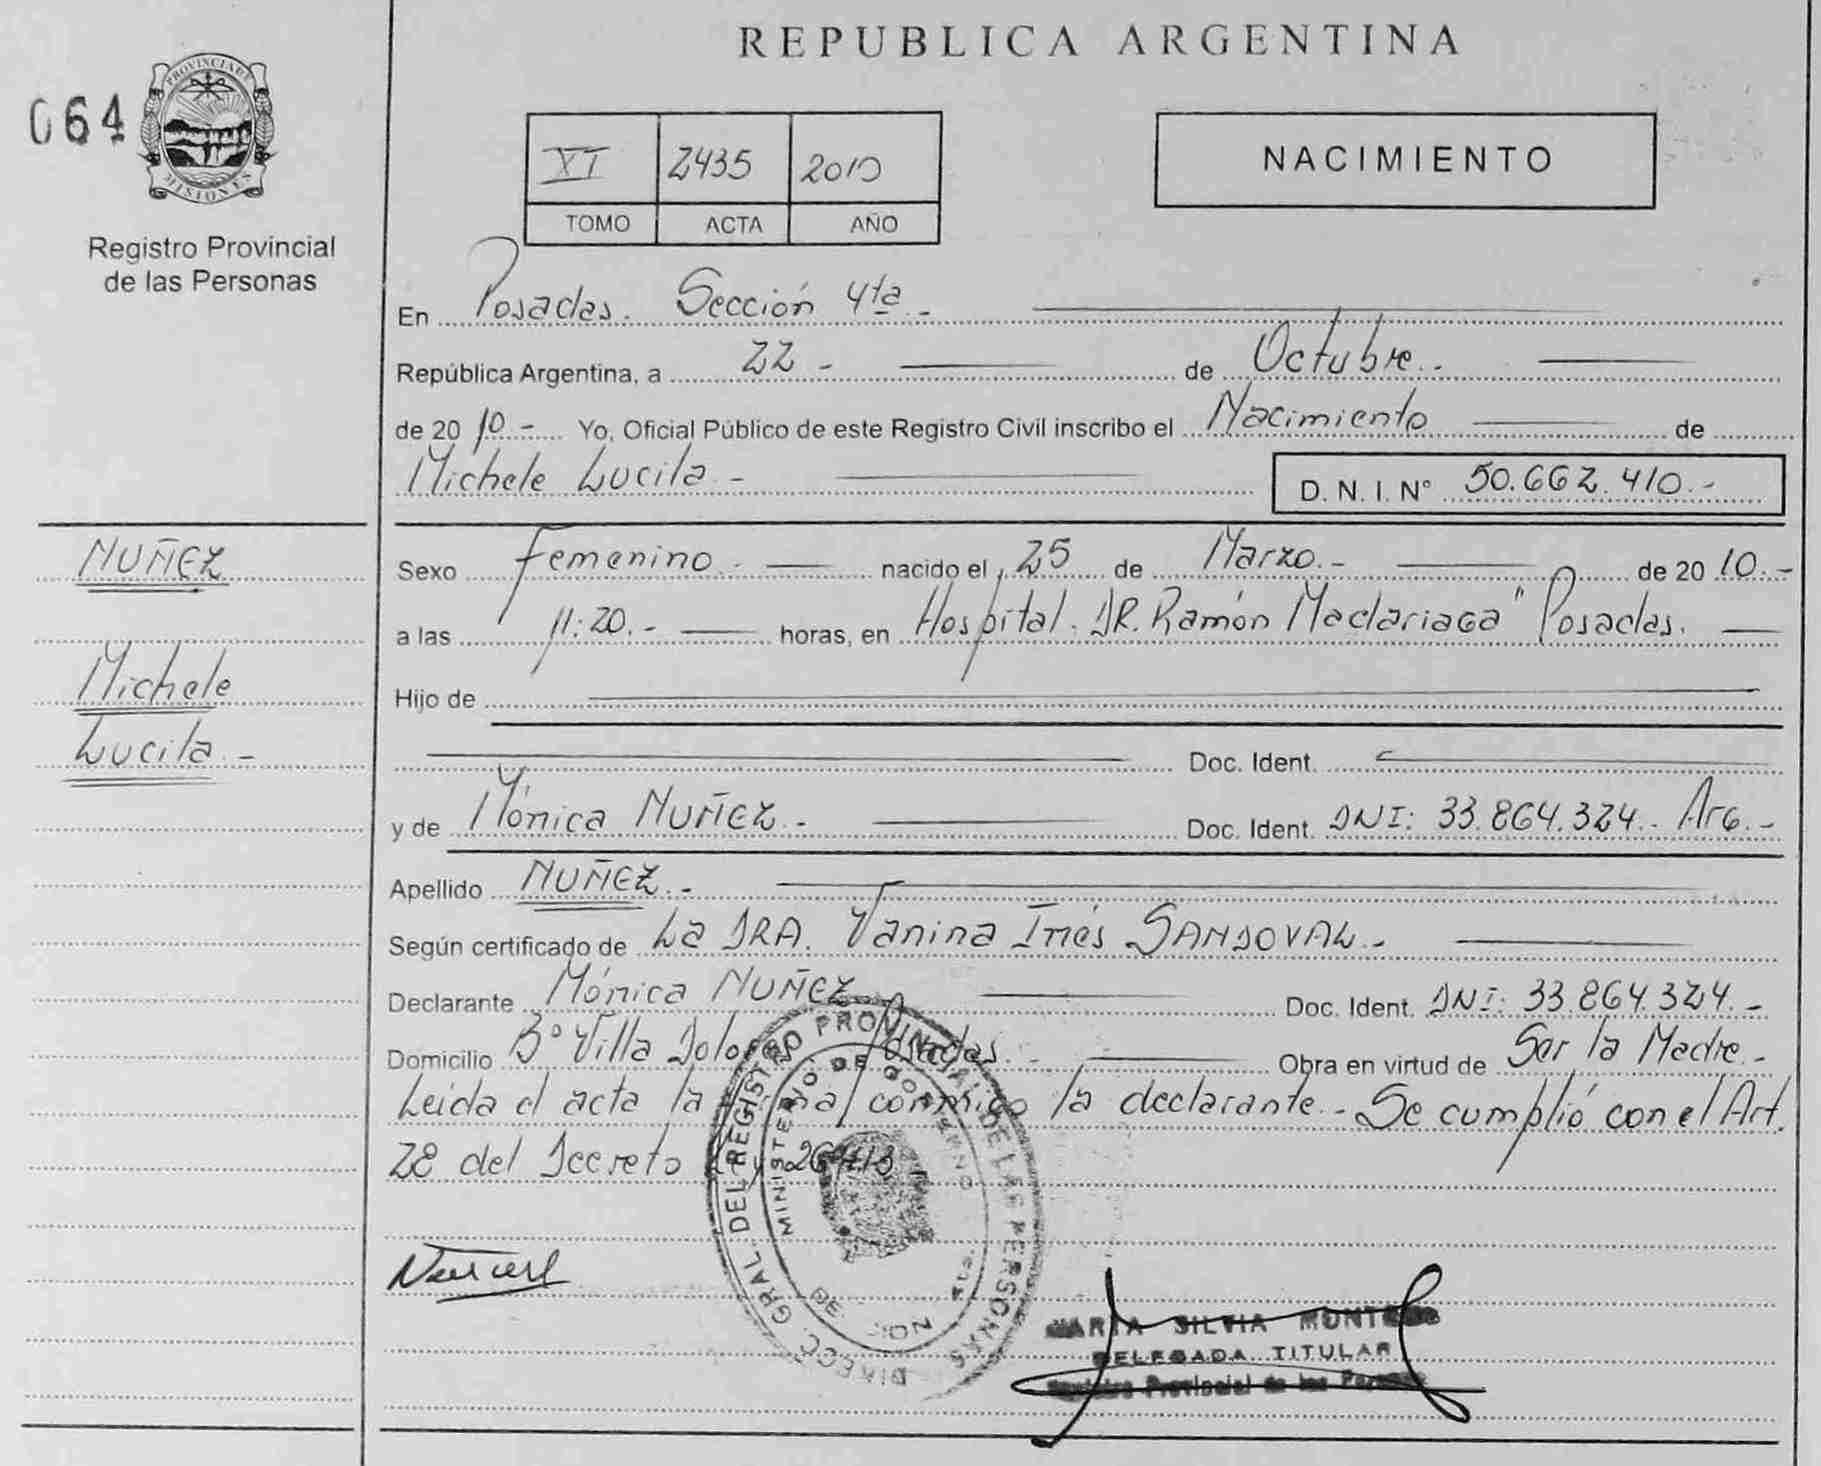 REPUBLICA ARGENTINA
064
PROVINCIA DE
MISIONES
Registro Provincial
de las Personas
XI 2435 2010
TOMO ACTA AÑO
NACIMIENTO
En Posadas. Sección 4ta.-
República Argentina, a 22- de Octubre.-
de 2010- Yo, Oficial Público de este Registro Civil inscribo el Nacimiento de
Michele Lucila.-
D. N. I. N° 50.662.410.-
NUÑEZ
Michele
Lucila.-
Sexo femenino.- nacido el 25 de Marzo.- de 2010.-
a las 11:20.- horas, en Hospital. DR. Ramón Madariaga" Posadas.
Hijo de
Doc. Ident.
y de Mónica NUÑEZ.- Doc. Ident. DNI: 33.864.324.- Arg.-
Apellido NUÑEZ.-
Según certificado de La DRA. Vanina Inés SANDOVAL.-
Declarante Mónica NUÑEZ Doc. Ident. DNI: 33.864.324.-
Domicilio B° Villa Posadas.- Obra en virtud de Ser la Madre.-
Leida el acta la conmigo la declarante.- Se cumplió con el Art.
28 del Decreto
DIRECC. GRAL. DEL REGISTRO PROVINCIAL DE LAS PERSONAS
MINISTERIO DE GOBIERNO
SILVIA
DELEGADA TITULAR
Provincial de las